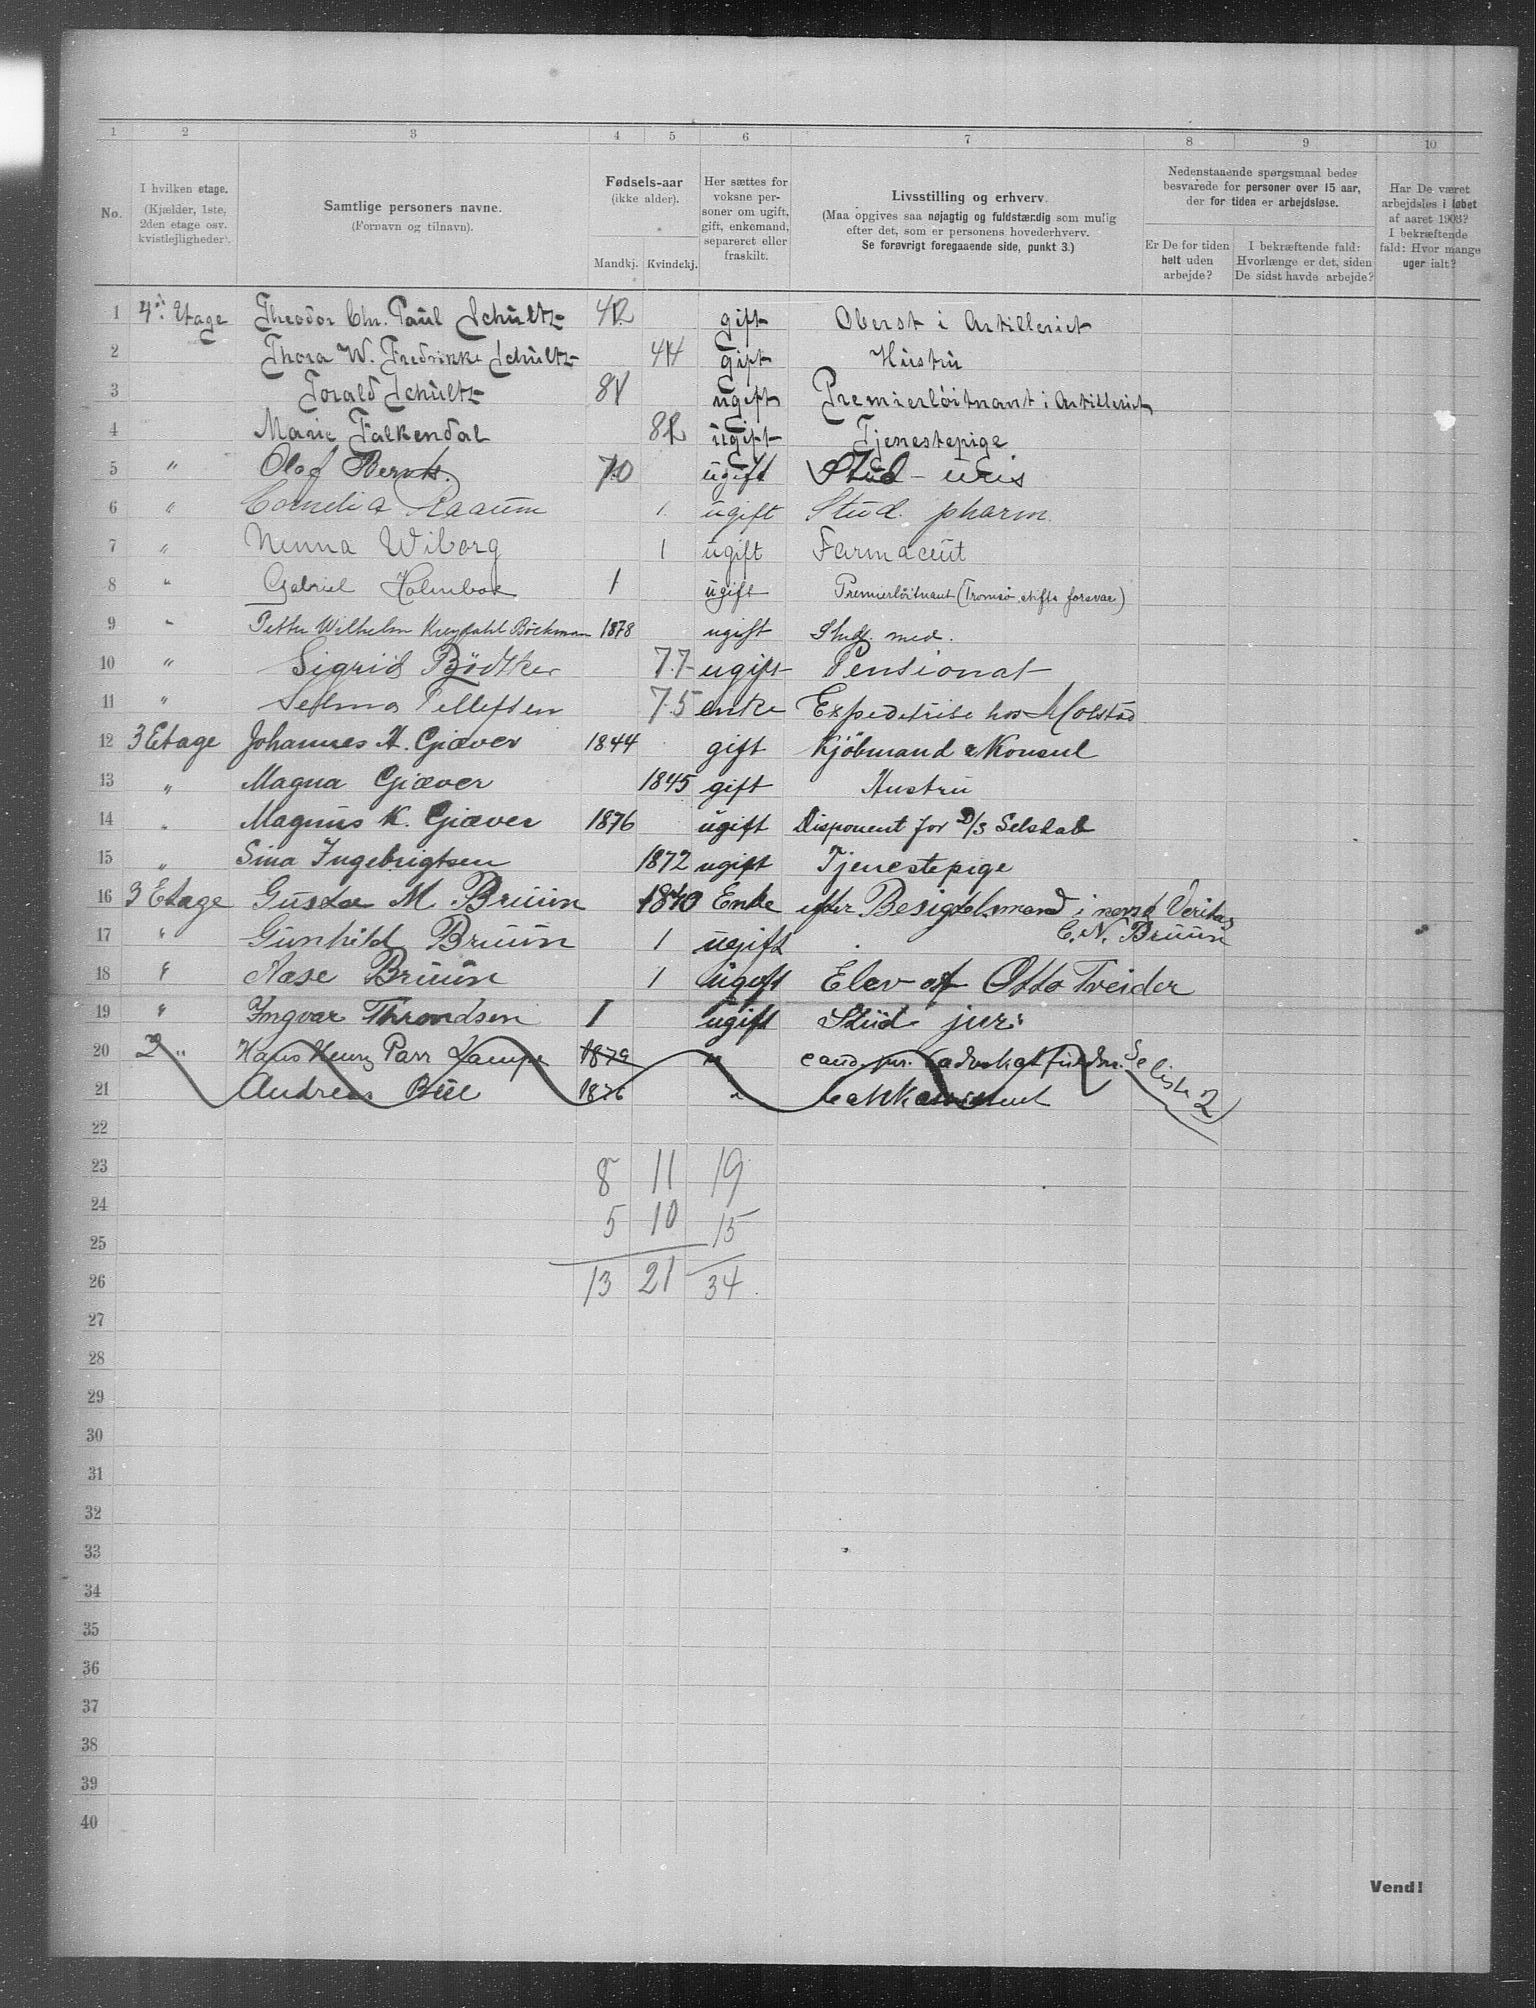 1 2 3 4 5 6 7 8 9 10
No.
I hvilken etage.
(Kjælder, 1ste,
2den etage osv.
kvistlejligheder).
Samtlige personers navne.
(Fornavn og tilnavn).
Fødsels-aar
(ikke alder).
Mandkj. Kvindekj.
Her sættes for
voksne per-
soner om ugift,
gift, enkemand,
separeret eller
fraskilt.
Livsstilling og erhverv.
(Maa opgives saa nøjagtig og fuldstændig som mulig
efter det, som er personens hovederhverv.
Se forøvrigt foregaaende side, punkt 3.)
Nedenstaaende spørgsmaal bedes
besvarede for personer over 15 aar,
der for tiden er arbejdsløse.
Er De for tiden
helt uden
arbejde?
I bekræftende fald:
Hvorlænge er det, siden
De sidst havde arbejde?
Har De været
arbejdsløs i løbet
af aaret 1903?
I bekræftende
fald: Hvor mange
uger ialt?
1 4de Etage Theodor Chr. Paul Schultz 42 gift Oberst i Artilleriet
2 Thora W. Fredrikke Schultz 44 gift Hustru
3 Torald Schultz 81 ugift Premierløitnant i Artilleriet
4 Marie Falkendal 82 ugift Tjenestepige
5 " Olaf 70 ugift Stud
6 " Cornelia Raaum 1 ugift Stud. pharm.
7 " Nenna Wiborg 1 ugift Farmaceut
8 " Gabriel Holmboe 1 ugift Premierløitnant (Tromsø stifts forsvar)
9 " Petter Wilhelm Kreydahl Böckman 1878 ugift Stud. med.
10 " Sigrid Bødtker 77 ugift Pensionat
11 " Selma Tellefsen 75 enke Expeditrise hos Molstad
12 3 Etage Johannes H. Giæver 1844 gift Kjöbmand & Konsul
13 " Magna Giæver 1845 gift Hustru
14 " Magnus K. Giæver 1876 ugift Disponent for D/S Selskab
15 " Sina Ingebrigtsen 1872 ugift Tjenestepige
16 3 Etage Gusta M. Bruun 1840 Enke efter Besigtelsmand i norsk Veritas
C. N. Bruun
17 " Gunhild Bruun 1 ugift
18 " Aase Bruun 1 ugift Elev af Otto Treider
19 " Ingvar Throndsen 1 ugift Stud jur.
20 2 " Hans Henr Parr 1879 " cand. jur. Se
21 Andreas Bue 1876 " liste 2
22
23 8 11 19
24 5 10 15
25
26 13 21 34
27
28
29
30
31
32
33
34
35
36
37
38
39
40
Vend!